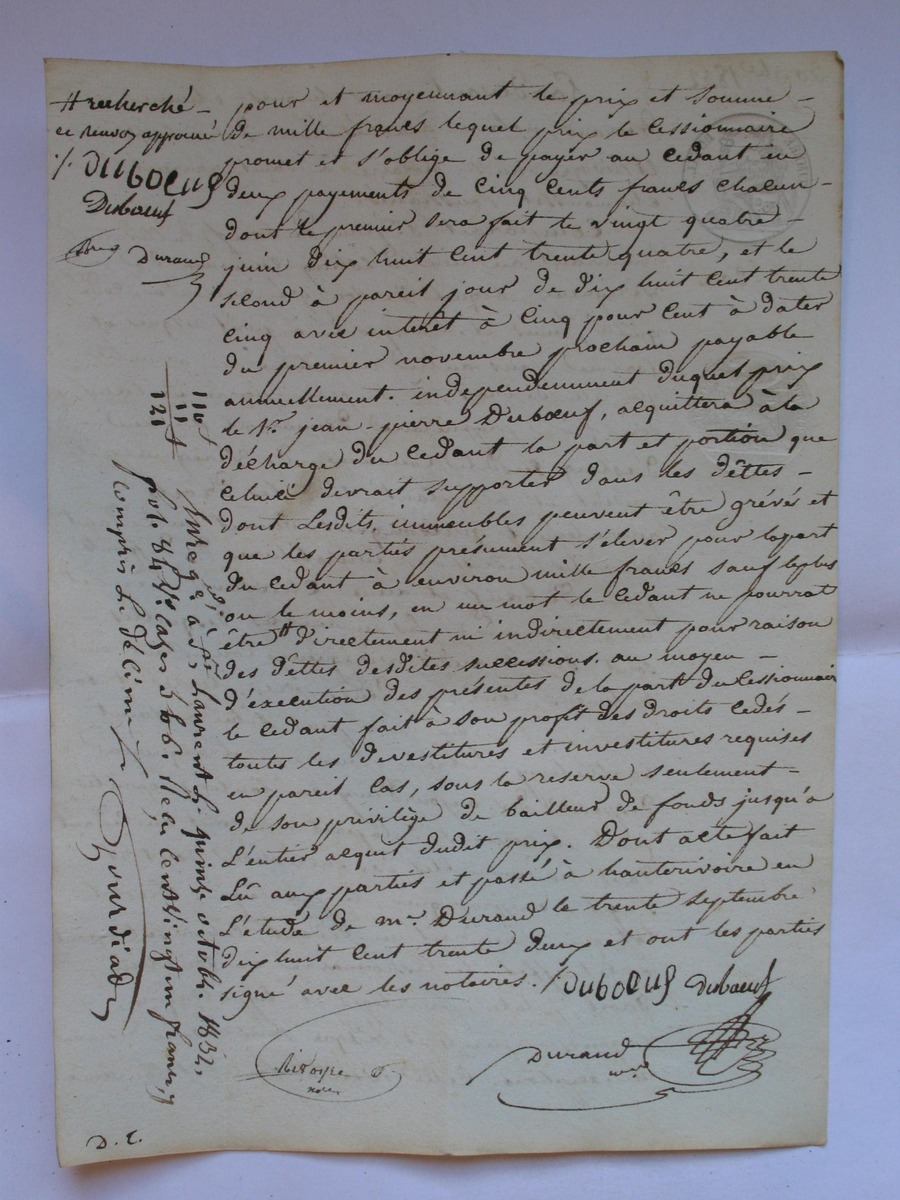 # recherché
ce renvoi approuvé
./. DuboeuF
Duboeuf
Durand
pour et moyennant le prix et somme
de mille francs lequel prix le cessionnaire
promet et s'oblige de payer au cedant en
deux payements de cinq cents francs chacun
dont le premier sera fait le vingt quatre
juin dix huit cent trente quatre, et le
second à pareil jour de dix huit cent trente
cinq avec intérêt à cinq pour cent à dater
du premier novembre prochain payable
annuellement. independemment duquel prix
le Sr. jean-pierre Duboeuf, acquittera à la
décharge du cedant la part et portion que
celuici devrait supporter dans les dêttes
dont Lesdits immeubles peuvent être grévés et
que les parties présument s'élever pour la part
du cedant à environ mille francs sauf le plus
ou le moins, en un mot le cedant ne pourrat
être # directement ni indirectement pour raison
des dêttes desdites successions. au moyen
d'execution des présentes de la part du cessionnaire
le cedant fait à son profit des droits cedés
toutes les devestitures et investitures requises
en pareil cas, sous la reserve seulement
de son privilège de bailleur de fonds jusqu'à
L'entier acquit dudit prix. Dont acte fait
Lû aux parties et passé à hauterivoire en
L'étude de me. Durand le trente septembre
dix huit cent trente deux et ont les parties
signé avec les notaires. /. DuboeuF Duboeuf
Durand
110
11
121
Enregé. à St. Laurent le quinze octobr. 1832,
fol. 84 Vo. cases 5 & 6. Reçu cent vingt un francs,
compris le décime.
D. E.